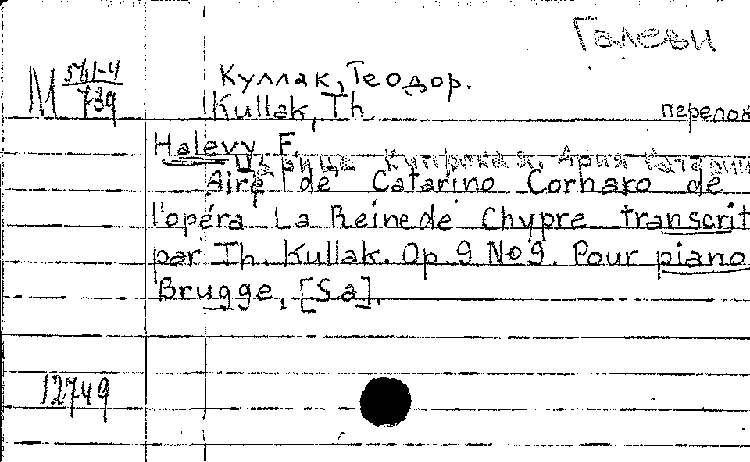 Галеви
М 561-4
739
Куллак, Теодор.
Kullak, Th
перелож
Halevy, F.
Царица Кипрская. Ария
Aire de Catarino Cornaro de
l'opéra La Reine de Chypre transcrit
par Th. Kullak. Op 9 No 9. Pour piano
Brugge, [S a].
12749